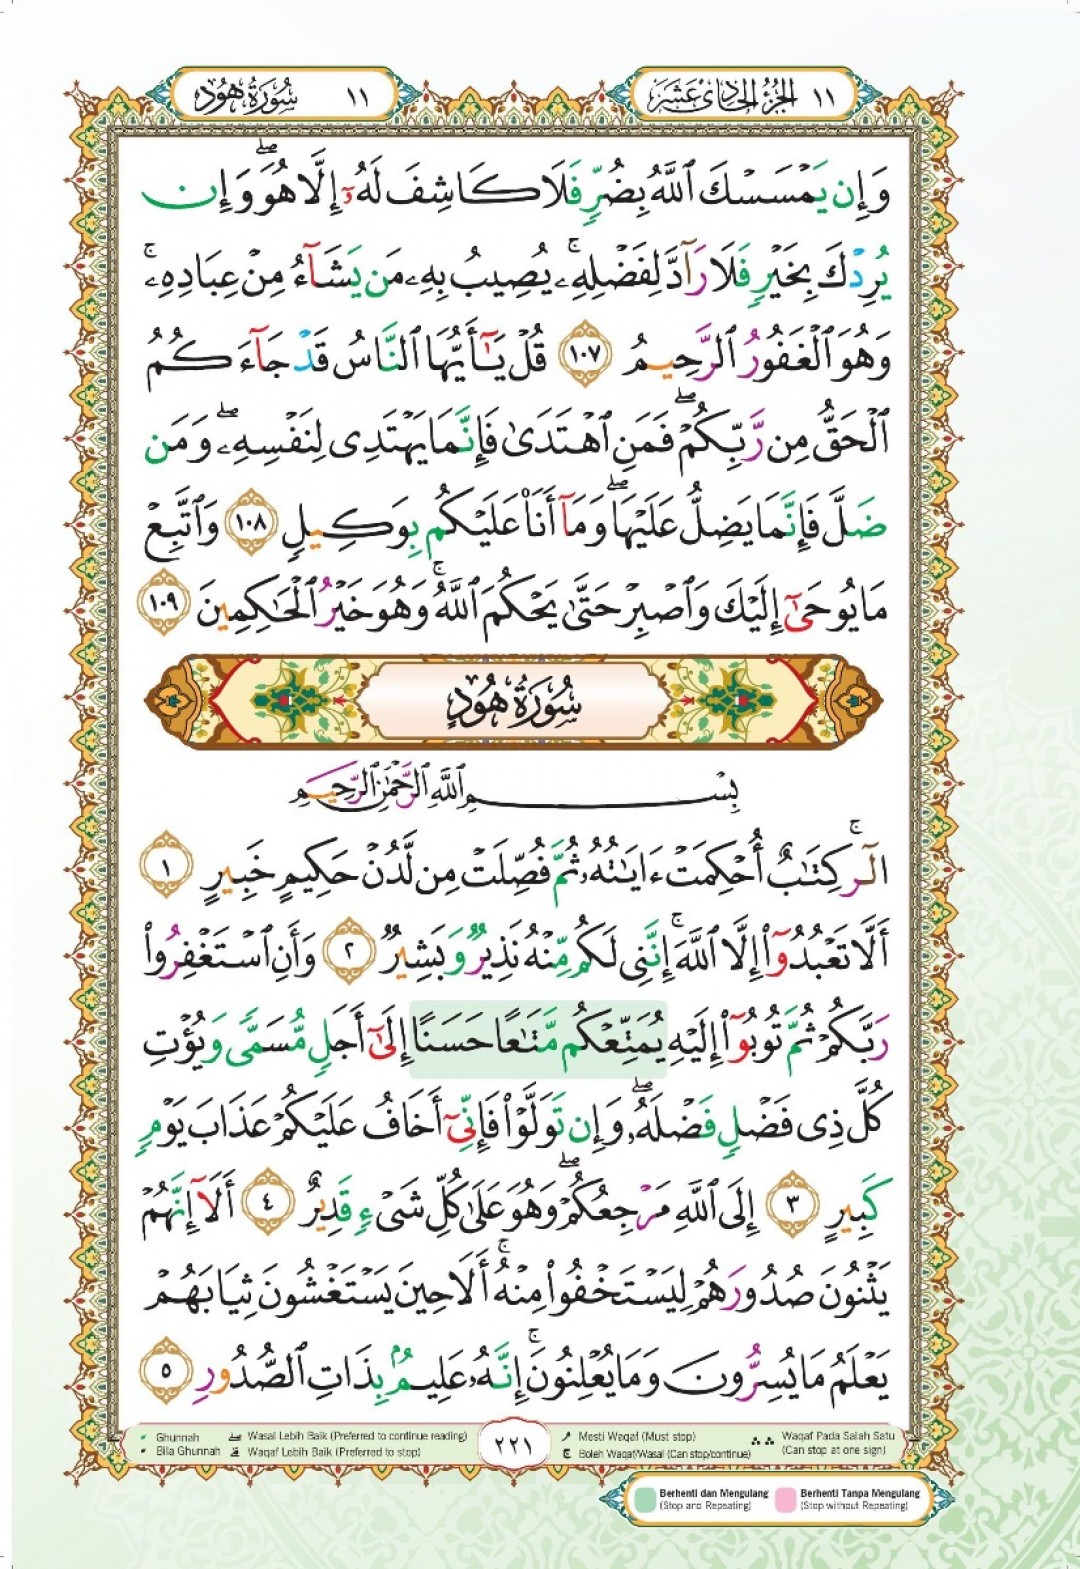 الجزء الحادي عشر ١١
سورة هود ١١
وَإِن يَمْسَسْكَ ٱللَّهُ بِضُرٍّ فَلَا كَاشِفَ لَهُۥٓ إِلَّا هُوَ ۖ وَإِن
يُرِدْكَ بِخَيْرٍ فَلَا رَآدَّ لِفَضْلِهِۦ ۚ يُصِيبُ بِهِۦ مَن يَشَآءُ مِنْ عِبَادِهِۦ ۚ
وَهُوَ ٱلْغَفُورُ ٱلرَّحِيمُ ١٠٧ قُلْ يَـٰٓأَيُّهَا ٱلنَّاسُ قَدْ جَآءَكُمُ
ٱلْحَقُّ مِن رَّبِّكُمْ ۖ فَمَنِ ٱهْتَدَىٰ فَإِنَّمَا يَهْتَدِى لِنَفْسِهِۦ ۖ وَمَن
ضَلَّ فَإِنَّمَا يَضِلُّ عَلَيْهَا ۖ وَمَآ أَنَا۠ عَلَيْكُم بِوَكِيلٍ ١٠٨ وَٱتَّبِعْ
مَا يُوحَىٰٓ إِلَيْكَ وَٱصْبِرْ حَتَّىٰ يَحْكُمَ ٱللَّهُ ۚ وَهُوَ خَيْرُ ٱلْحَـٰكِمِينَ ١٠٩
سُورَةُ هُودٍ
بِسْمِ ٱللَّهِ ٱلرَّحْمَـٰنِ ٱلرَّحِيمِ
الٓر ۚ كِتَـٰبٌ أُحْكِمَتْ ءَايَـٰتُهُۥ ثُمَّ فُصِّلَتْ مِن لَّدُنْ حَكِيمٍ خَبِيرٍ ١
أَلَّا تَعْبُدُوٓا۟ إِلَّا ٱللَّهَ ۚ إِنَّنِى لَكُم مِّنْهُ نَذِيرٌ وَبَشِيرٌ ٢ وَأَنِ ٱسْتَغْفِرُوا۟
رَبَّكُمْ ثُمَّ تُوبُوٓا۟ إِلَيْهِ يُمَتِّعْكُم مَّتَـٰعًا حَسَنًا إِلَىٰٓ أَجَلٍ مُّسَمًّى وَيُؤْتِ
كُلَّ ذِى فَضْلٍ فَضْلَهُۥ ۖ وَإِن تَوَلَّوْا۟ فَإِنِّىٓ أَخَافُ عَلَيْكُمْ عَذَابَ يَوْمٍ
كَبِيرٍ ٣ إِلَى ٱللَّهِ مَرْجِعُكُمْ ۖ وَهُوَ عَلَىٰ كُلِّ شَىْءٍ قَدِيرٌ ٤ أَلَآ إِنَّهُمْ
يَثْنُونَ صُدُورَهُمْ لِيَسْتَخْفُوا۟ مِنْهُ ۚ أَلَا حِينَ يَسْتَغْشُونَ ثِيَابَهُمْ
يَعْلَمُ مَا يُسِرُّونَ وَمَا يُعْلِنُونَ ۚ إِنَّهُۥ عَلِيمٌۢ بِذَاتِ ٱلصُّدُورِ ٥
Ghunnah صلے Wasal Lebih Baik (Preferred to continue reading) ٢٢١ م Mesti Waqaf (Must stop) ∴ ∴ Waqaf Pada Salah Satu
Bila Ghunnah قلے Waqaf Lebih Baik (Preferred to stop) ج Boleh Waqaf/Wasal (Can stop/continue) (Can stop at one sign)
Berhenti dan Mengulang Berhenti Tanpa Mengulang
(Stop and Repeating) (Stop without Repeating)